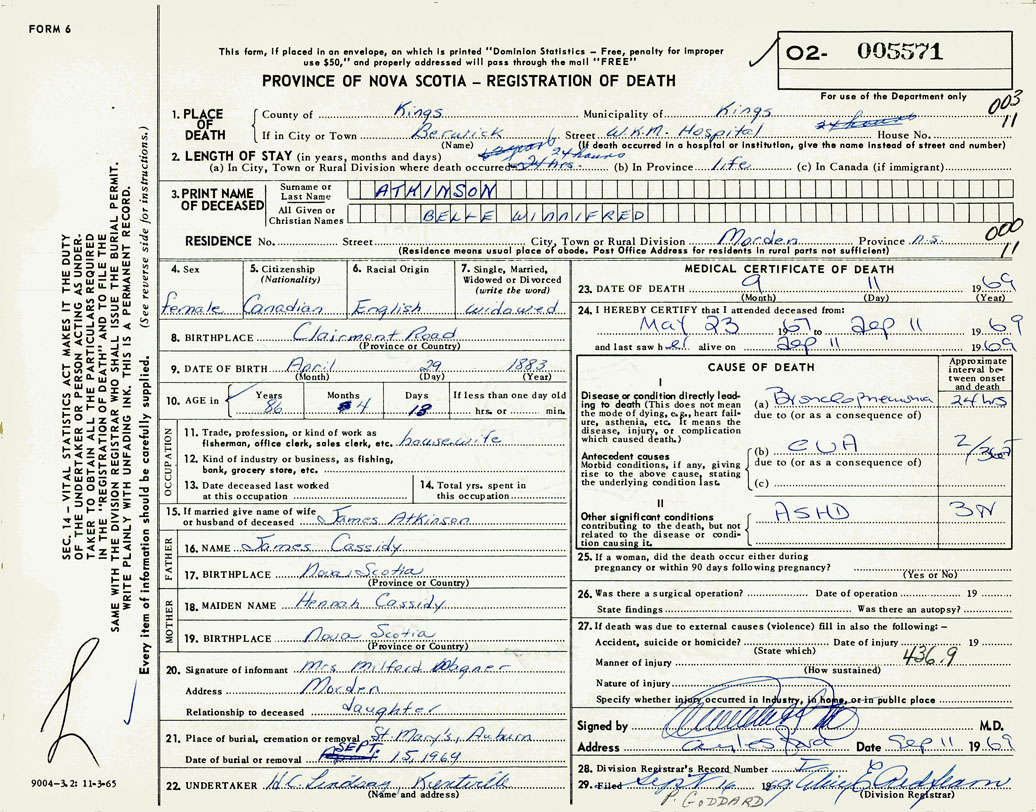 FORM 6
This form, if placed in an envelope, on which is printed "Dominion Statistics – Free, penalty for improper
use $50," and properly addressed will pass through the mail "FREE"
PROVINCE OF NOVA SCOTIA – REGISTRATION OF DEATH
02- 005571
For use of the Department only
003
11
1. PLACE OF DEATH
County of Kings Municipality of Kings
If in City or Town Berwick Street W.K.M. Hospital 24 hours House No.
(Name) (If death occurred in a hospital or institution, give the name instead of street and number)
2. LENGTH OF STAY (in years, months and days) 24 hours
(a) In City, Town or Rural Division where death occurred 24 hrs. (b) In Province life (c) In Canada (if immigrant)
3. PRINT NAME OF DECEASED
Surname or Last Name ATKINSON
All Given or Christian Names BELLE WINNIFRED
000
11
RESIDENCE No. Street City, Town or Rural Division Morden Province N.S.
(Residence means usual place of abode. Post Office Address for residents in rural parts not sufficient)
4. Sex
female
5. Citizenship
(Nationality)
Canadian
6. Racial Origin
English
7. Single, Married,
Widowed or Divorced
(write the word)
widowed
8. BIRTHPLACE Clairmont Road
(Province or Country)
9. DATE OF BIRTH April 29 1883
(Month) (Day) (Year)
10. AGE in
Years
86
Months
4
Days
13
If less than one day old
hrs. or min.
OCCUPATION
11. Trade, profession, or kind of work as
fisherman, office clerk, sales clerk, etc. housewife
12. Kind of industry or business, as fishing,
bank, grocery store, etc.
13. Date deceased last worked
at this occupation
14. Total yrs. spent in
this occupation
15. If married give name of wife
or husband of deceased James Atkinson
FATHER
16. NAME James Cassidy
17. BIRTHPLACE Nova Scotia
(Province or Country)
MOTHER
18. MAIDEN NAME Hennah Cassidy
19. BIRTHPLACE Nova Scotia
(Province or Country)
20. Signature of informant Mrs Milford Wagner
Address Morden
Relationship to deceased daughter
21. Place of burial, cremation or removal St Mary's, Auburn
Date of burial or removal SEPT. 15, 1969
22. UNDERTAKER W.C. Lindsay Kentville
(Name and address)
MEDICAL CERTIFICATE OF DEATH
23. DATE OF DEATH 9 11 1969
(Month) (Day) (Year)
24. I HEREBY CERTIFY that I attended deceased from:
May 23 1967 to Sep 11 1969
and last saw her alive on Sep 11 1969
CAUSE OF DEATH
Approximate
interval be-
tween onset
and death
I
Disease or condition directly lead-
ing to death (This does not mean
the mode of dying, e.g., heart fail-
ure, asthenia, etc. It means the
disease, injury, or complication
which caused death.)
(a) Bronchopneumonia 24 hrs
due to (or as a consequence of)
Antecedent causes
Morbid conditions, if any, giving
rise to the above cause, stating
the underlying condition last.
(b) CVA
due to (or as a consequence of)
(c)
II
Other significant conditions
contributing to the death, but not
related to the disease or condi-
tion causing it.
ASHD
25. If a woman, did the death occur either during
pregnancy or within 90 days following pregnancy?
(Yes or No)
26. Was there a surgical operation? Date of operation 19
State findings Was there an autopsy?
27. If death was due to external causes (violence) fill in also the following: –
Accident, suicide or homicide? Date of injury 19
(State which)
436.9
Manner of injury
(How sustained)
Nature of injury
Specify whether injury occurred in industry, in home, or in public place
Signed by M.D.
Address Date Sep 11 1969
28. Division Registrar's Record Number
29. Filed Sept 16 19
(Division Registrar)
P. GODDARD
SEC. 14 – VITAL STATISTICS ACT MAKES IT THE DUTY
OF THE UNDERTAKER OR PERSON ACTING AS UNDER-
TAKER TO OBTAIN ALL THE PARTICULARS REQUIRED
IN THE "REGISTRATION OF DEATH" AND TO FILE THE
SAME WITH THE DIVISION REGISTRAR WHO SHALL ISSUE THE BURIAL PERMIT.
WRITE PLAINLY WITH UNFADING INK. THIS IS A PERMANENT RECORD.
Every item of information should be carefully supplied. (See reverse side for instructions.)
9004–3.2: 11-3-65